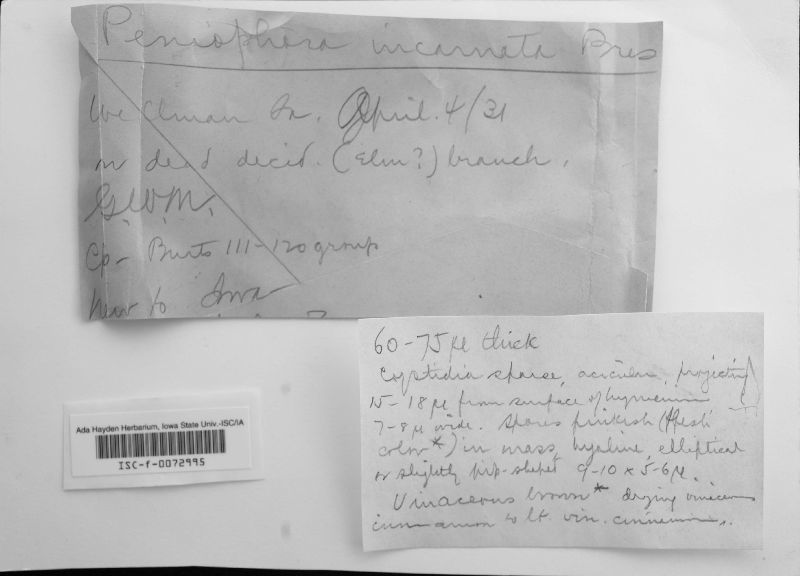 Peniophora incarnata Bres
Wellman Ia. April. 4/31
on dead decid. (Elm?) branch.
G.W.M.
Cp- Burts 111-120 group
New to Iowa
60-75 µ thick
Cystidia sparse, acicular, projecting
15-18 µ from surface of hymenium
7-8 µ wide. Spores pinkish (flesh
color*) in mass, hyaline, elliptical
or slightly pip-shaped 9-10 x 5-6 µ.
Vinaceous brown* drying vinaceous
cinnamon to lt. vin. cinnamon.
Ada Hayden Herbarium, Iowa State Univ.-ISC/IA
ISC-f-0072995